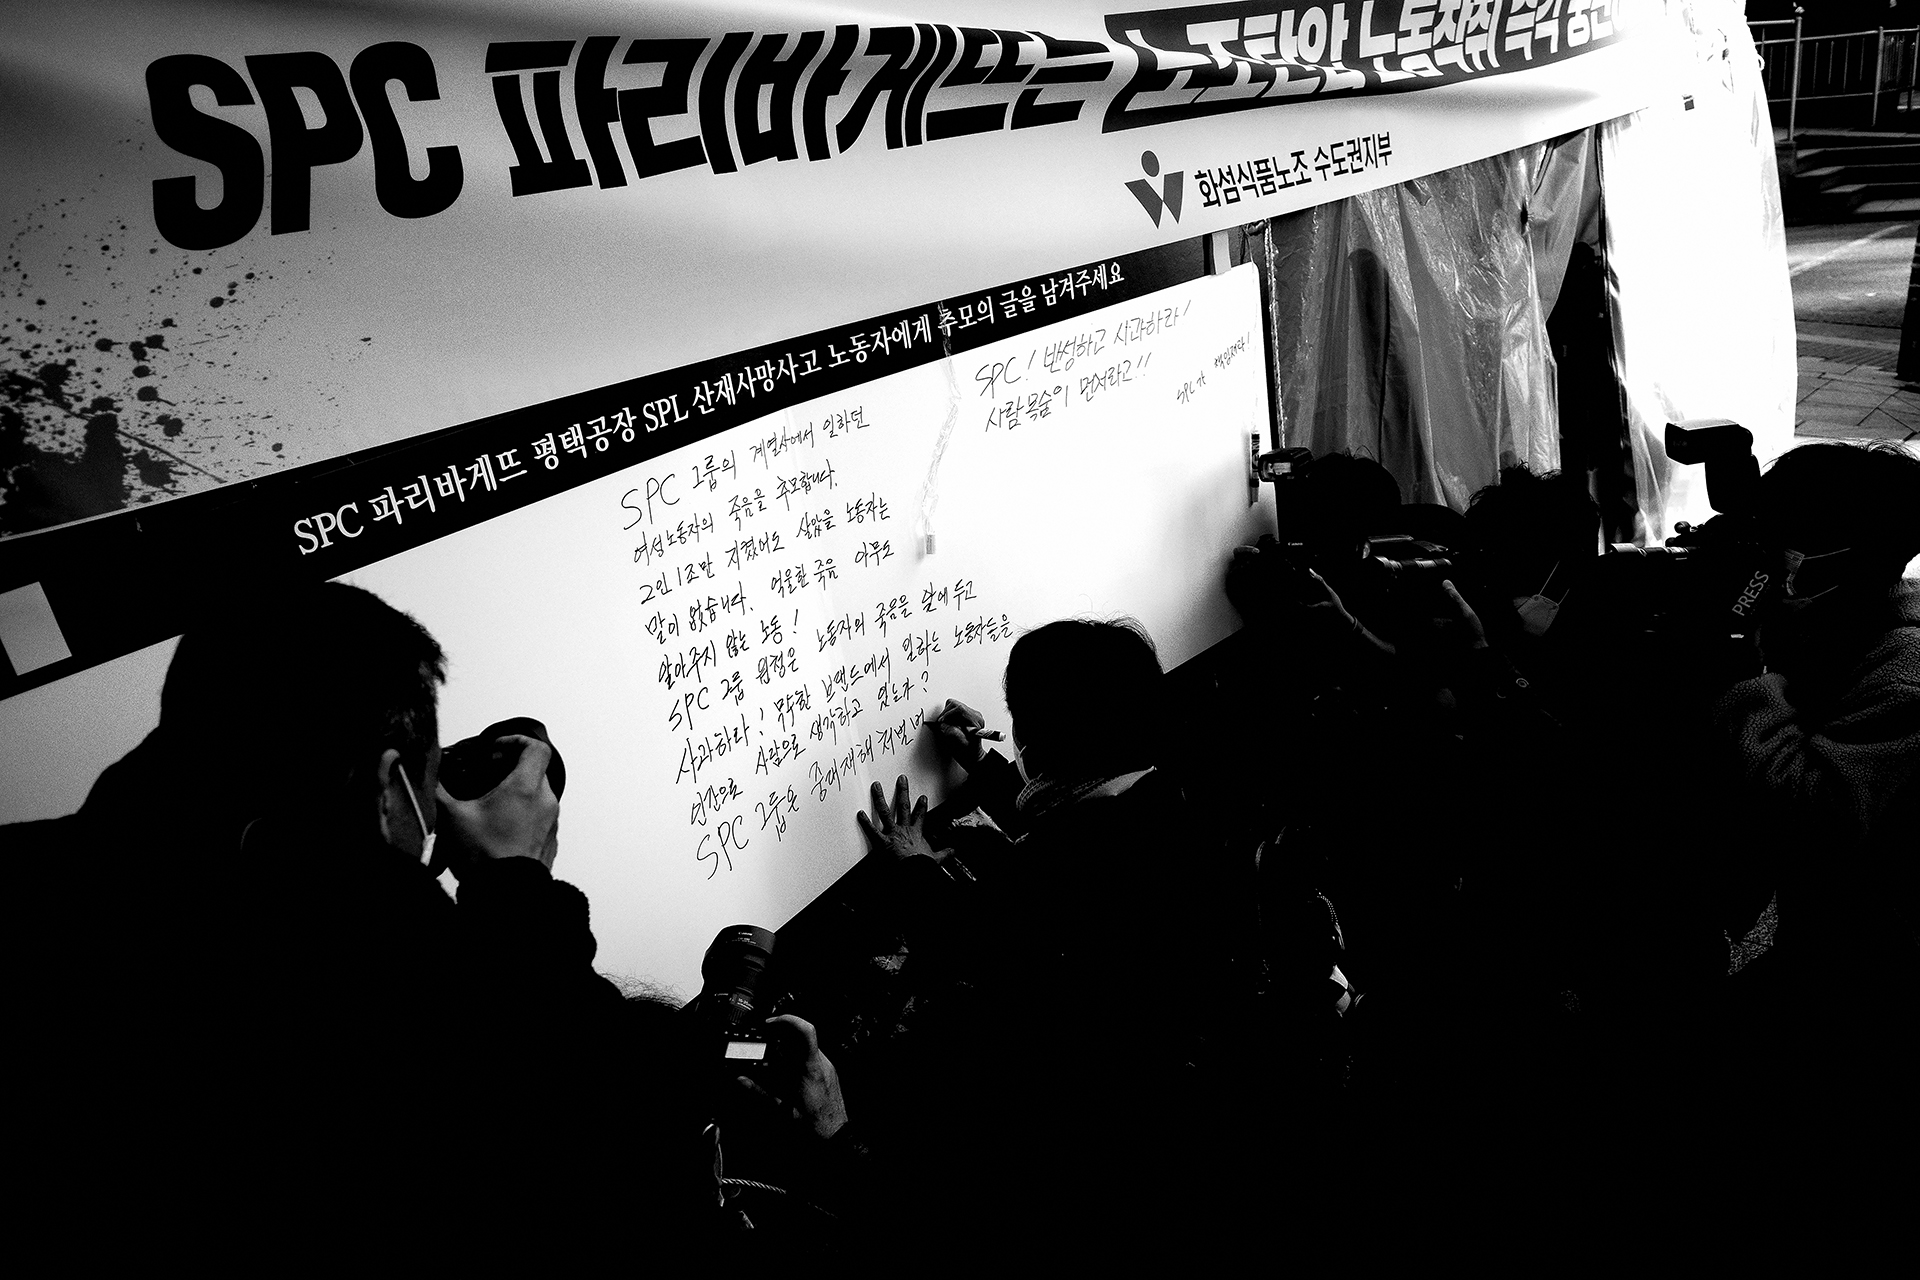 SPC 파리바게뜨는 노조탄압 노동착취 즉각 중단
화섬식품노조 수도권지부
SPC 파리바게뜨 평택공장 SPL 산재사망사고 노동자에게 추모의 글을 남겨주세요
SPC! 반성하고 사과하라!
사람목숨이 먼저라고!!
SPL가 책임져라!
SPC 그룹의 계열사에서 일하던
여성노동자의 죽음을 추모합니다.
2인1조만 지켰어도 살았을 노동자는
말이 없습니다. 억울한 죽음 아무도
알아주지 않는 노동!
SPC 그룹 원청은 노동자의 죽음을 앞에 두고
사과하라! 무수한 브랜드에서 일하는 노동자들을
인간으로 사람으로 생각하고 있는가?
SPC 그룹은 중대재해처벌버
PRESS